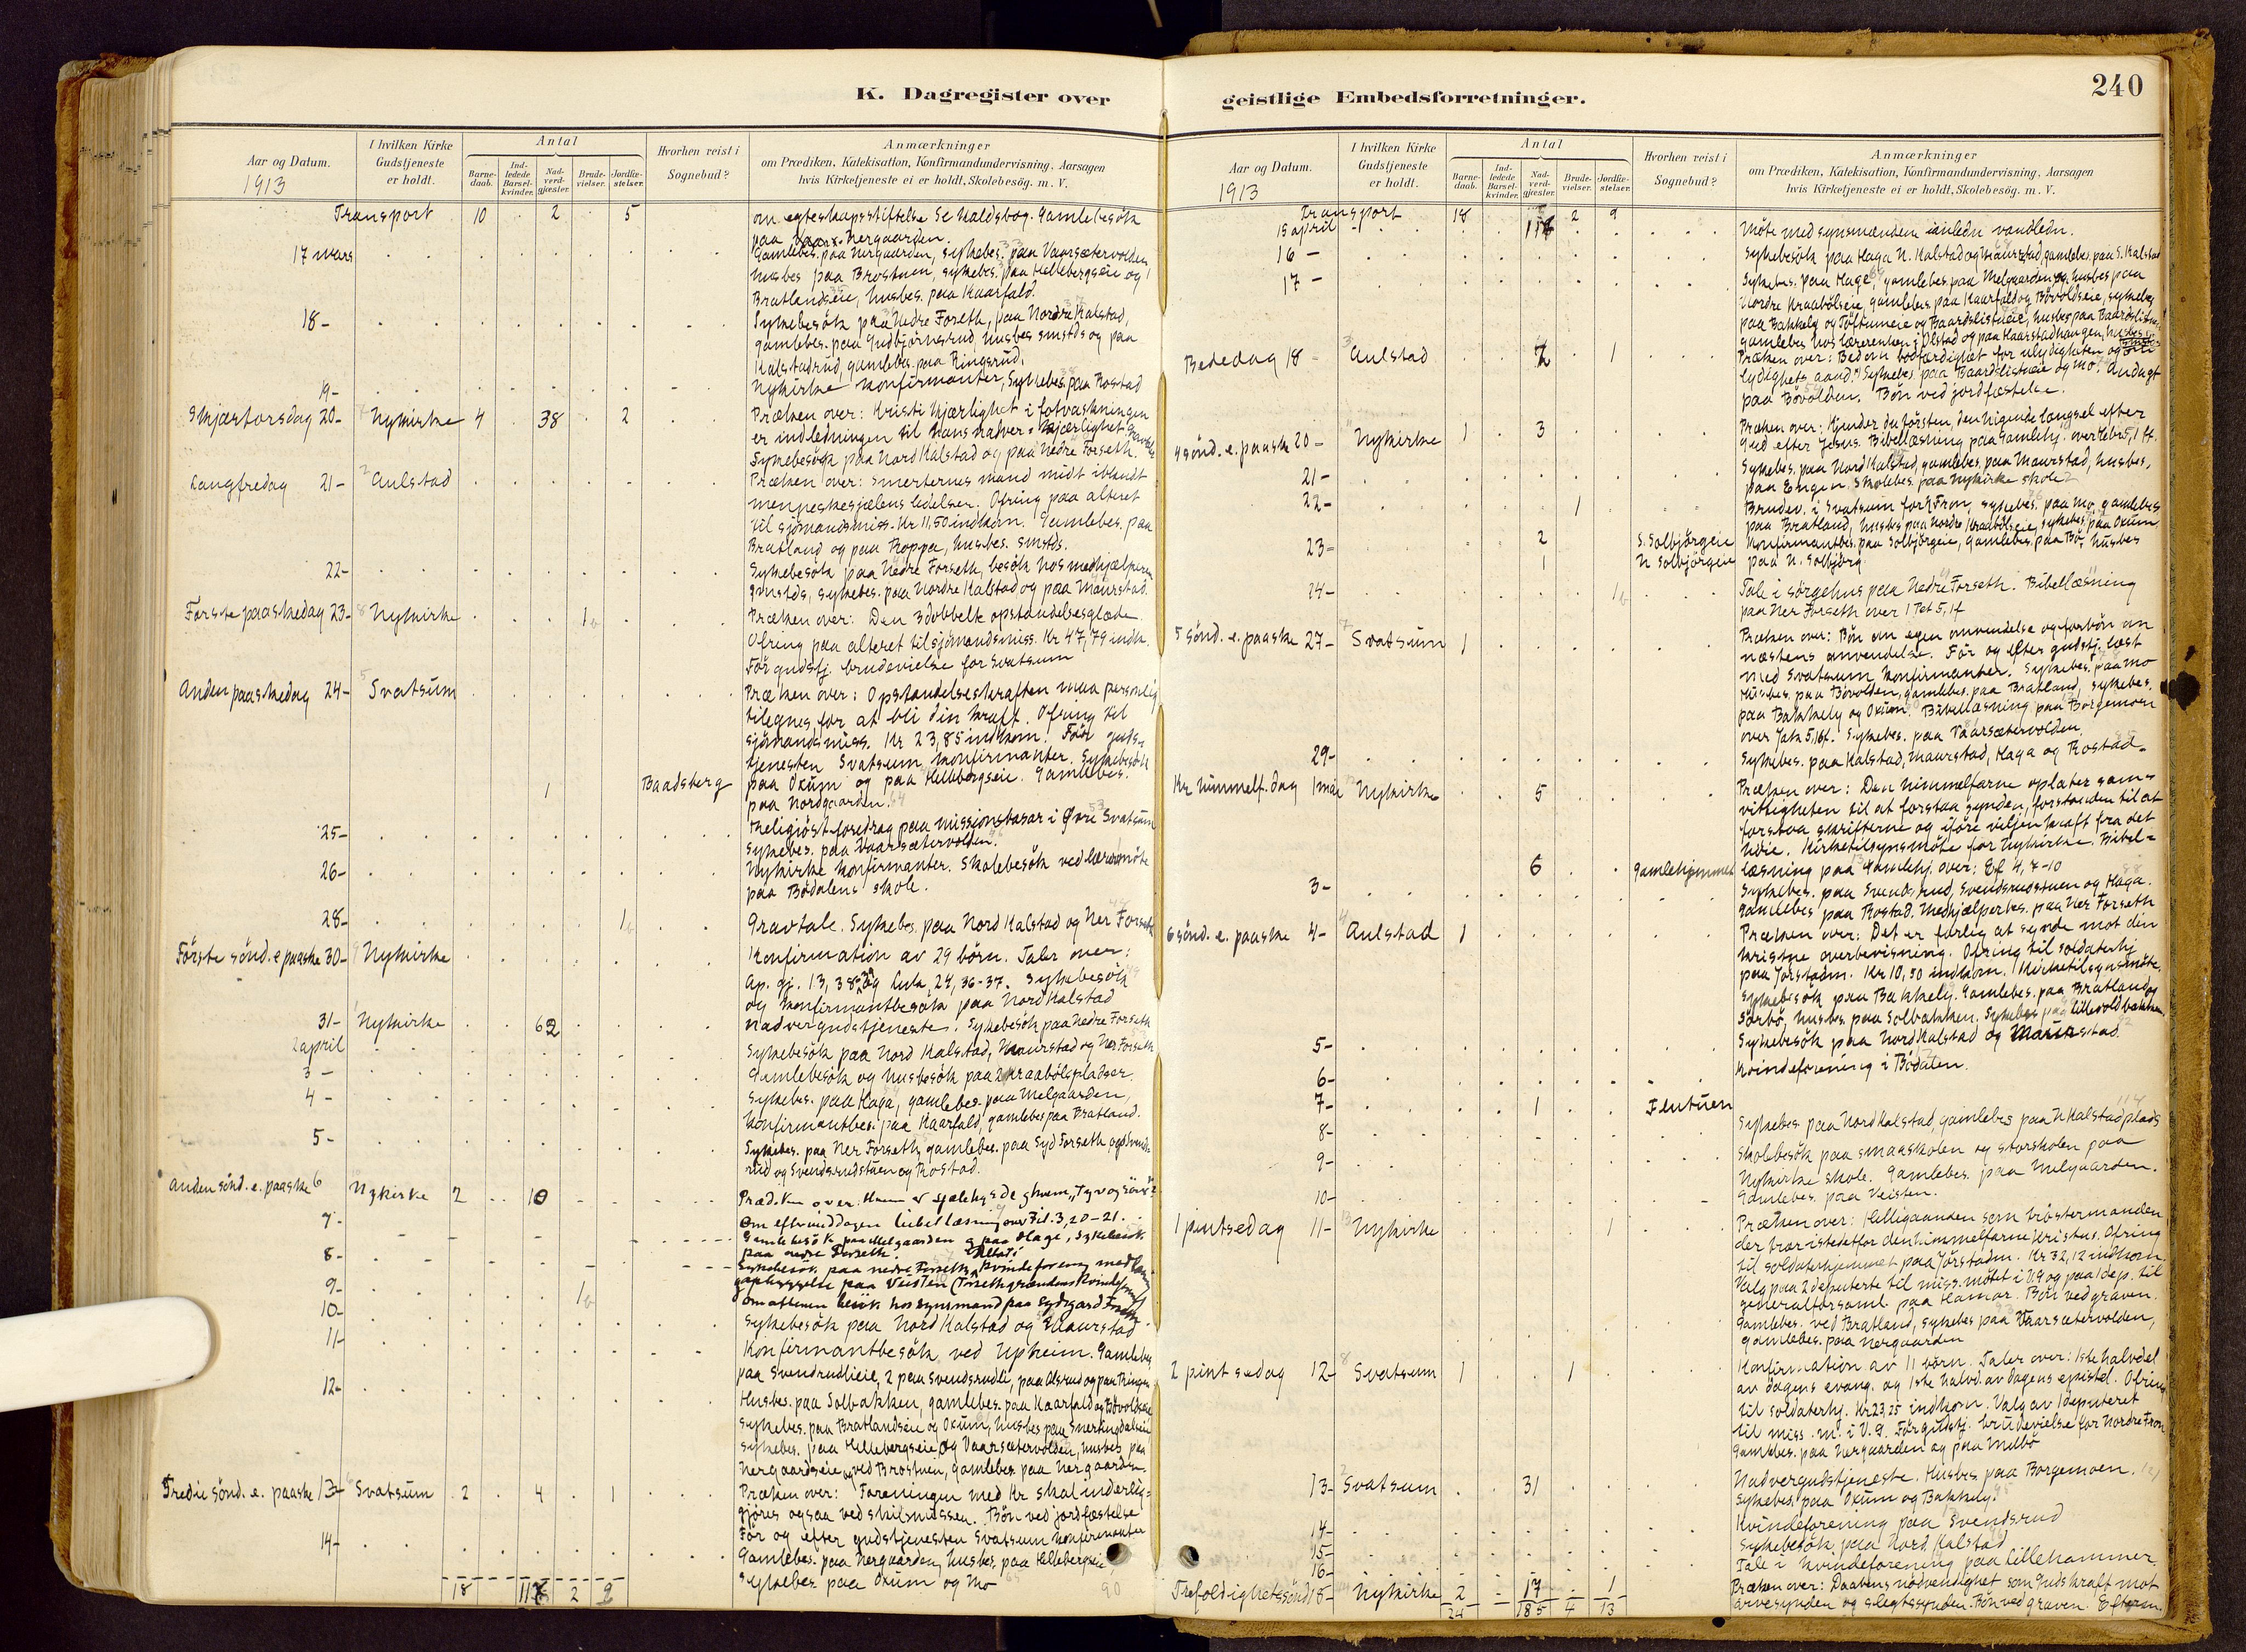 K. Dagregister over
Aar og Datum.
1913
I hvilken Kirke
Gudstjeneste
er holdt.
Antal
Barne-
daab.
Ind-
ledede
Barsel-
kvinder.
Nad-
verd-
gjæster.
Brude-
vielser.
Jordfæ-
stelser.
Hvorhen reist i
Sognebud?
Anmærkninger
om Prædiken, Katekisation, Konfirmandundervisning, Aarsagen
hvis Kirketjeneste ei er holdt, Skolebesøg. m. V.
Transport 10 2 5 om egteskapsstiftelse se kaldsbog. Gamlebesök
paa Nergaarden.
17 mars Gamlebes. paa Nergaarden, sykebes. paa Vaarsætervolden
husbes paa Brostuen, sykebes. paa Hellebergseie og
Bratlandseie, husbes. paa Kaarfald.
18- Sykebesök paa Nedre Forseth, paa Nordre Kalstad,
gamlebes. paa Gudbjörnsrud, husbes smstds og paa
Kalstadrud, gamlebes. paa Ringsrud.
19- Nykirke konfirmanter, Sykebes. paa Rostad
Skjærtorsdag 20- Nykirke 4 38 2 Præken over: Kristi kjærlighet i fotvaskningen
er indledningen til hans nadver-kjærlighet
Sykebesök paa Nord Kalstad og paa Nedre Forseth.
Langfredag 21- Aulstad Præken over: Smerternes mand midt iblandt
menneskesjælens lidelser. Ofring paa alteret
til sjömandsmiss. Kr 11,50 indkom. Gamlebes. paa
Bratland og paa Roppa, husbes. smstds.
22- Sykebesök paa Nedre Forseth, besök hos medhjælperen
smstds, sykebes. paa Nordre Kalstad og paa Maurstad.
Förste paaskedag 23- Nykirke 1 Præken over: Den 3dobbelte opstandelsesglæde
Ofring paa alteret til sjömandsmiss. Kr 47,79 indk.
För gudstj. brudevielse for Svatsum
Anden paaskedag 24- Svatsum Præken over: Opstandelseskraften maa personlig
tilegnes for at bli din kraft. Ofring til
sjömandsmiss. Kr 23,85 indkom. För guds-
tjenesten Svatsum konfirmanter. Sykebesök
1 Baadsberg paa Oxum og paa Hellebergseie. Gamlebes.
paa Nordgaarden.
25- Religiöst foredrag paa missionsbasar i Övre Svatsum
sykebes. paa Vaarsætervolden.
26- Nykirke konfirmanter. Skolebesök ved lærermöte
paa Bödalens skole.
28- 1 Gravtale. Sykebes. paa Nord Kalstad og Ner Forseth
Förste sönd. e paaske 30- Nykirke Konfirmation av 29 börn. Taler over:
Ap. gj. 13, 38 og Luk. 24, 36-37. Sykebesök
og konfirmantbesök paa Nord Kalstad
31- Nykirke 62 nadvergudstjeneste. Sykebesök paa Nedre Forseth
2 april Sykebesök paa Nord Kalstad, Maurstad og Ner Forseth
3- Gamlebesök og husbesök paa 2 Kraabölspladser.
4- Sykebes. paa Haga, gamlebes. paa Melgaarden,
Konfirmantbes. paa Kaarfald, gamlebes paa Bratland.
5- Sykebes. paa Ner Forseth, gamlebes. paa Syd Forseth, og Svends-
rud og Svendsrudstuen og Rostad.
Anden sönd. e. paaske 6 Nykirke 2 10
7- Om eftermiddagen bibellæsning over Fil. 3, 20-21.
Gamlebesök paa Melgaarden og paa Hage, Sykebesök
paa nedre Forseth.
8- Sykebesök paa nedre Forseth, Kvindeforening
9- 1
10- Om aftenen besök hos synsmand paa Sydgard Forseth
Sykebesök paa Nord Kalstad og Maurstad
11- Konfirmantbesök ved Upheim. Gamlebes.
paa Svendsrudlieie, 2 paa Svendsrudli, paa Olsrud og paa Ringen
12- Husbes. paa Solbakken, gamlebes. paa Kaarfald og Bövoldseie
sykebes. paa Bratlandseie og Oxum, husbes paa
sykebes. paa Hellebergseie og Vaarsætervolden, husbes paa
Nergaardseie og ved Brostuen, gamlebes. paa Nergaarden.
Tredie sönd. e. paaske 13- Svatsum 2 4 1 Præken over: Foreningen med Kr skal inderlig-
gjöres ogsaa ved skilsmissen. Bön ved jordfæstelse
För og efter gudstjenesten Svatsum konfirmanter
14- Gamlebes. paa Nergaarden, husbes. paa Hellebergseie
sykebes. paa Oxum og Mo
18 2 9
240
geistlige Embedsforretninger.
Aar og Datum.
1913
I hvilken Kirke
Gudstjeneste
er holdt.
Antal
Barne-
daab.
Ind-
ledede
Barsel-
kvinder.
Nad-
verd-
gjæster.
Brude-
vielser.
Jordfæ-
stelser.
Hvorhen reist i
Sognebud?
Anmærkninger
om Prædiken, Katekisation, Konfirmandundervisning, Aarsagen
hvis Kirketjeneste ei er holdt, Skolebesøg. m. V.
Transport 18 2 9
15 april Möte med synsmændene
16- Sykebesök paa Haga N. Kalstad og Maurstad, gamlebes. paa S. Kalstad
17- Sykebes. paa Hage, gamlebes. paa Melgaarden og husbes paa
Nordre Kraabölseie, gamlebes. paa Kaarfald og Bövoldseie, sykebes
paa Bakkely og Töftumeie og Baardslistueie, husbes. paa
gamlebes hos lærerenken i Olstad og paa Kaarstadhaugen,
Bededag 18- Aulstad 2 1 Præken over: Bed om bodfærdighet for ulydigheten og om
lydighets aand. Sykebes. paa Baardslistueie og Mo. Andagt
paa Bövolden. Bön ved jordfæstelse.
4 sönd. e. paaske 20- Nykirke 1 3 Præken over: Kjender du törsten, den higende længsel efter
Gud efter Jesus. Bibellæsning paa Gamlehj. over Hebr 5,1 ff.
21- Sykebes. paa Nord Kalstad, gamlebes. paa Maurstad, husbes.
paa Engen. Skolebes. paa Nykirke skole
22- 1 Brudev. i Svatsum for N Fron, sykebes. paa Mo, gamlebes
paa Bratland, husbes paa Nordre Kraabölseie, sykebes. paa Oxum.
23- 2 S. Solbjörgeie Konfirmantbes. paa Solbjörgeie, gamlebes. paa Bö, husbes
1 N Solbjörgeie paa N. Solbjörg.
24- 1 Tale i sörgehus paa Nedre Forseth. Bibellæsning
paa Ner Forseth over 1 Pet 5, 1f
5 sönd. e. paaske 27- Svatsum 1 Præken over: Bön om egen omvendelse og forbön om
næstens omvendelse. För og efter gudstj. læst
med Svatsum konfirmanter. Sykebes. paa Mo
Husbes. paa Bövolden, gamlebes. paa Bratland, sykebes.
paa Bakkely og Oxum. Bibellæsning paa Borgemoen
over Jak 5,16f. Sykebes. paa Vaarsætervolden.
29- Sykebes. paa Kalstad, Maurstad, Haga og Rostad.
Kr himmelf. dag 1 mai Nykirke 5 Præken over: Den himmelfarne oplater sam-
vittigheten til at forstaa synden, forstanden til at
forstaa skrifterne og iföre viljen kraft fra det
höie. Kirketilsynsmöte for Nykirke. Bibel-
6 Gamlehjemmet læsning paa Gamlehj. over: Ef 4, 7-10
3- Sykebes. paa Svendsrud, Svendsrudstuen og Haga.
Gamlebes paa Rostad. Medhjælperbes. paa Ner Forseth
6 sönd. e. paaske 4- Aulstad 1 Præken over: Det er farlig at synde mot din
kristne overbevisning. Ofring til soldaterhj
paa Jörstadm. Kr 10,50 indkom. Kirketilsynsmöte.
Sykebesök paa Bakkely. Gamlebes. paa Bratland og
Sörbö, husbes. paa Solbakken. Sykebes paa Lillevoldbakken.
5- Sykebesök paa Nord Kalstad og Maurstad.
6- Kvindeforening i Bödalen.
7- 1 Flutuen
8- Sykebes. paa Nord Kalstad, gamlebes paa N Kalstadplads
9- Skolebesök paa smaaskolen og storskolen paa
Nykirke skole. Gamlebes. paa Melgaarden.
10- Gamlebes. paa Veisten.
1 pintsedag 11- Nykirke 1 Præken over: Helligaanden som tröstermanden
der trær istedetfor den himmelfarne Kristus. Ofring
til soldaterhjemmet paa Jörstadm. Kr 32,12 indkom
Valg paa 2 deputerte til miss. mötet i V G og paa 1 dep. til
generalforsaml. paa Hamar. Bön ved graven.
Gamlebes. ved Bratland, sykebes paa Vaarsætervolden,
gamlebes. paa Nergaarden
2 pintsedag 12- Svatsum 1 1 Konfirmation av 11 börn. Taler over: 1ste halvdel
av dagens evang. og 1ste halvd. av dagens epistel. Ofring
til soldaterhj. Kr 23,25 indkom. Valg av 1 deputeret
til miss. m. i V. G. För gudstj. brudevielse for Nordre Fron
Gamlebes. paa Nergaarden og paa Melbö
13- Svatsum 31 Nadvergudstjeneste. Husbes. paa Borgemoen.
sykebes. paa Oxum og Bakkely.
14- Kvindeforening paa Svendsrud
15- Sykebesök paa Nord Kalstad
16- Tale i kvindeforening paa Lillehammer.
Trefoldighetssönd 18- Nykirke 2 17 1 Præken over: Daabens nödvendighet som Guds kraft mot
24 185 4 13 arvesynden og slegtssynden. Bön ved graven. Efterm.